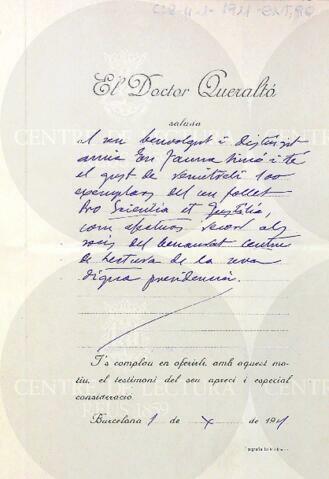 El Doctor Queraltó
saluda
al seu benvolgut i distingit
amic En Jaume Simó i té
el gust de remetreli 100
exemplars del seu follet
Pro Scientia et Justitia,
com afectuos record als
socis del benaurat Centre
de Lectura de la seva
digna presidencia.
I's complau en oferirli, amb aquest mo-
tiu, el testimoni del seu apreci i especial
consideració
Barcelona 1 de X de 1921
CENTRE DE LECTURA